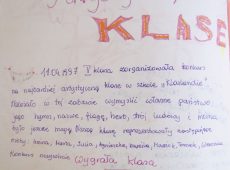 KLASE
11.04.1997 V klasa zorganizowała konkurs
na najbardziej artystyczną klasę w szkole "Klaslandie"
Należało w tej zabawie wymyślić własne państwo
jego hymn, nazwę, flagę, herb, strój ludowy i można
było jeszcze mapę. Naszą klasę reprezentowały następujące
osoby: Anna, Marta, Julia, Agnieszka,
Konkurs oczywiście Wygrała klasa